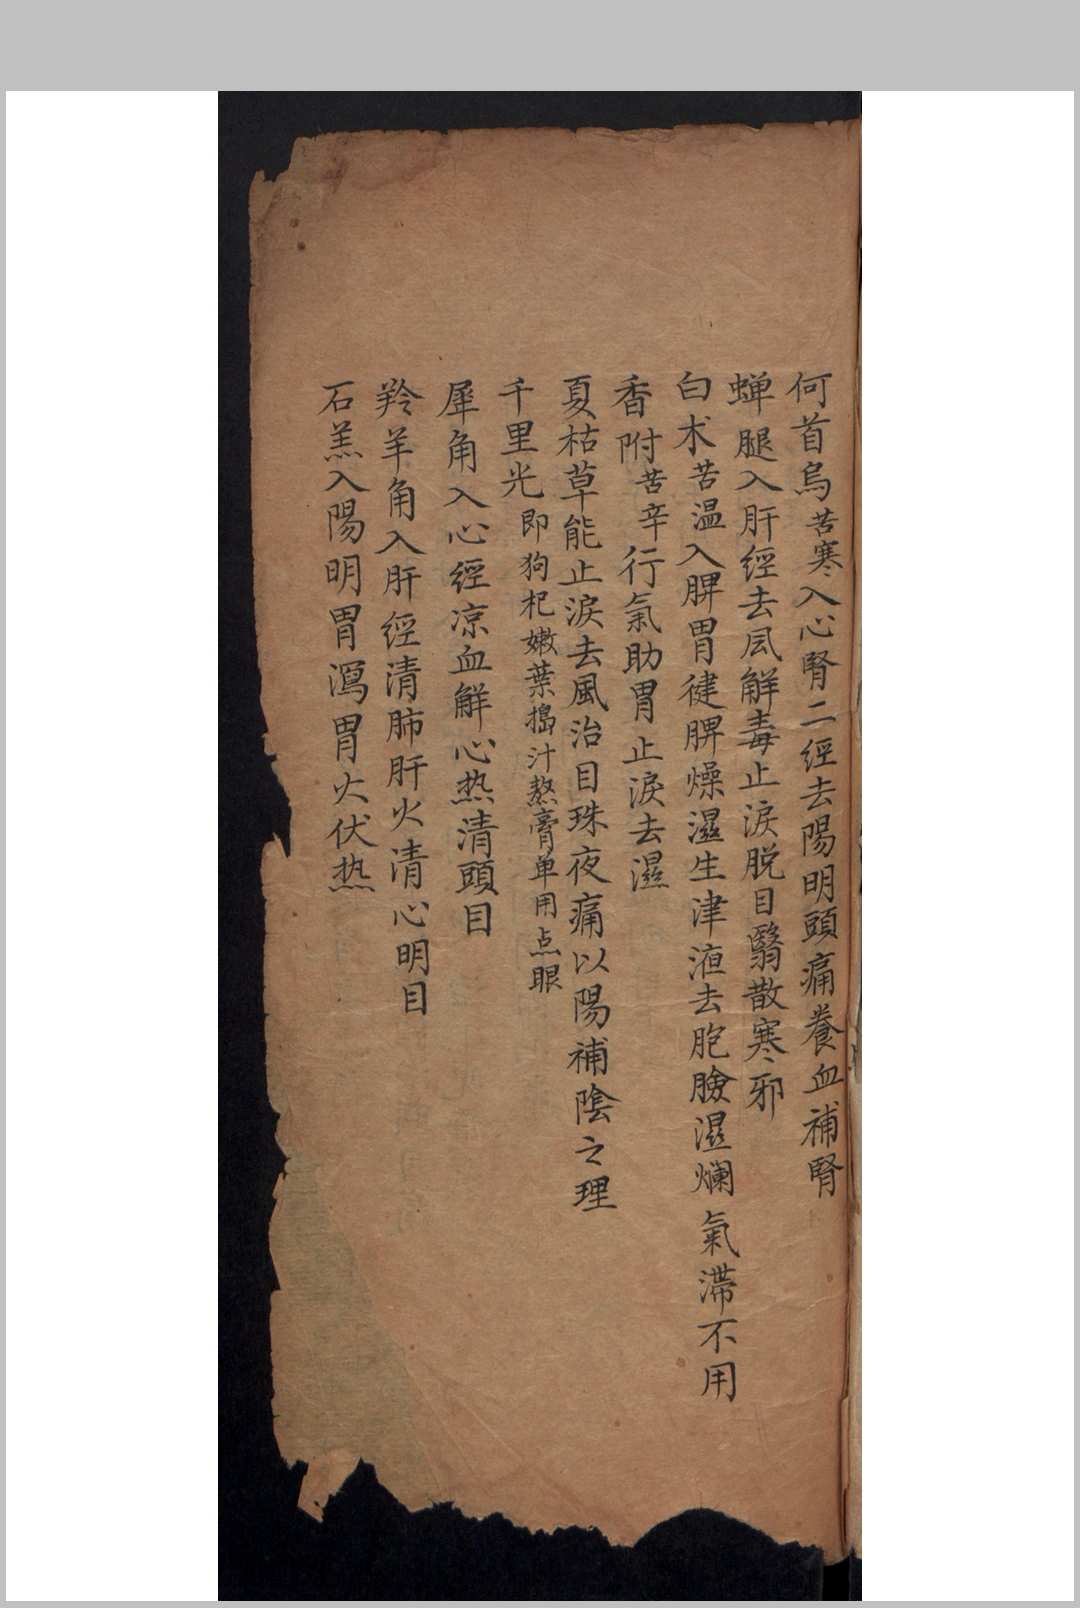 何首烏苦寒入心腎二經去陽明頭痛養血補腎
蟬腿入肝經去風解毒止淚脱目翳散寒邪
白术苦温入脾胃健脾燥濕生津液去胞臉濕爛氣滯不用
香附苦辛行氣助胃止淚去濕
夏枯草能止淚去風治目珠夜痛以陽補陰之理
千里光即狗杞嫩葉搗汁熬膏单用点眼
犀角入心經凉血解心热清頭目
羚羊角入肝經清肺肝火清心明目
石羔入陽明胃瀉胃火伏热